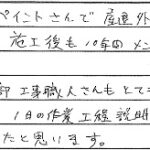 ペイントさんで 屋運外
施工後も 10年間 メン
部 工事職人さんも とてき
1日の作業工程 説明
たと思います。